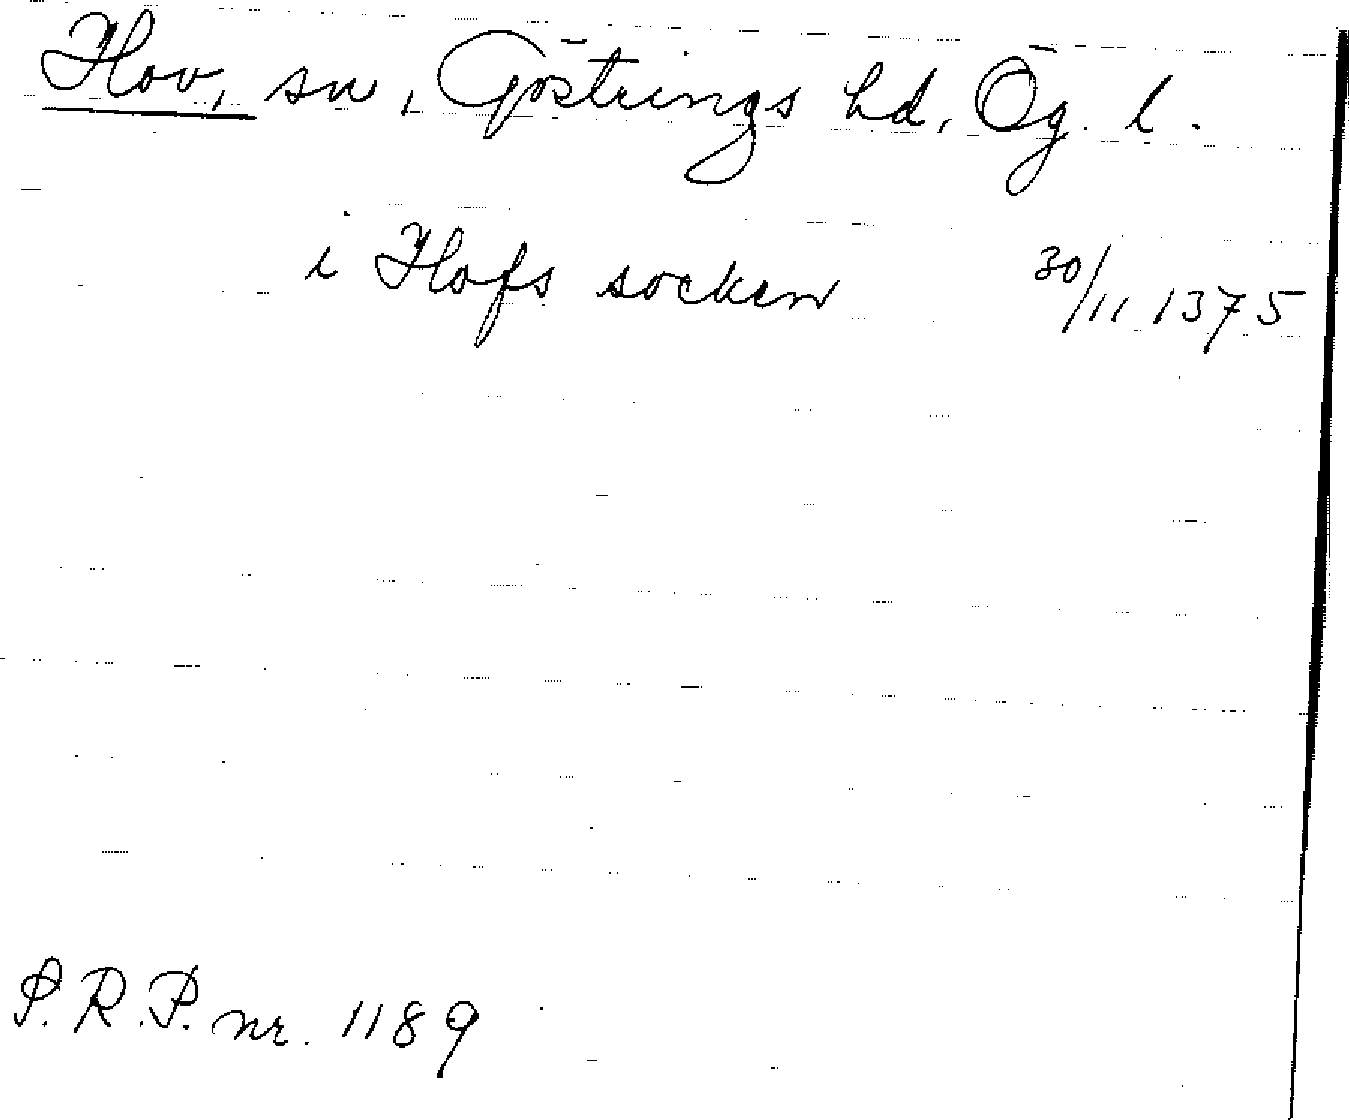 Hov, sn, Göstrings hd, Ög. l.
i Hofs socken 30/11 1375
S.R.P. nr. 1189